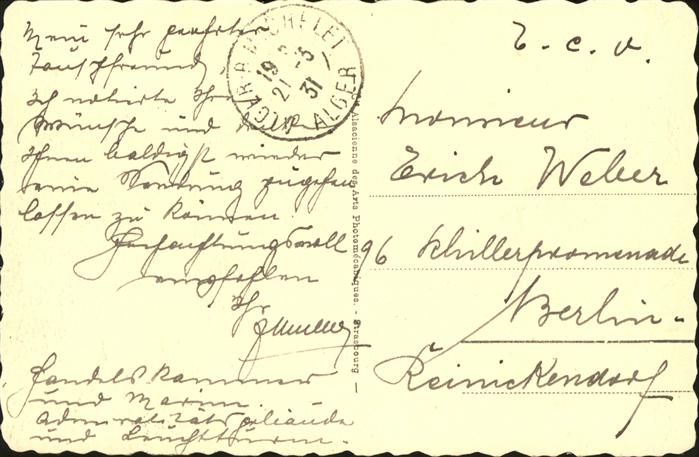 Mein sehr geehrter
Tauschfreund,
Ich notierte Ihre
Wünsche und
Ihnen baldigst wieder
eine Sendung zugehen
lassen zu können.
Hochachtungsvoll
empfohlen
Ihr
Handelskammer
und Marine
Admiralitätsgebäude
und Leuchtturm.
ALGER R. MICHELET
19
21 -5
31
ALGER
Alsacienne des Arts Photomécaniques. - Strasbourg
T. c. v.
Monsieur
Erich Weber
96 Schillerpromenade
Berlin-
Reinickendorf